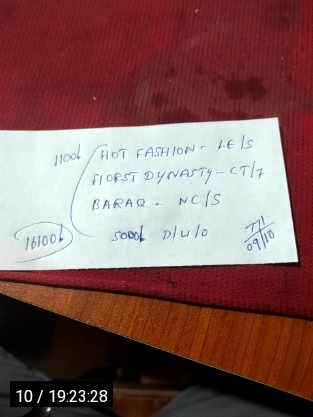 1100/- HOT FASHION - LE/S
FIORST DYNASTY - CT/7
BARAQ - NC/S
16100/- 5000/- D/U/O
09/10
10 / 19:23:28